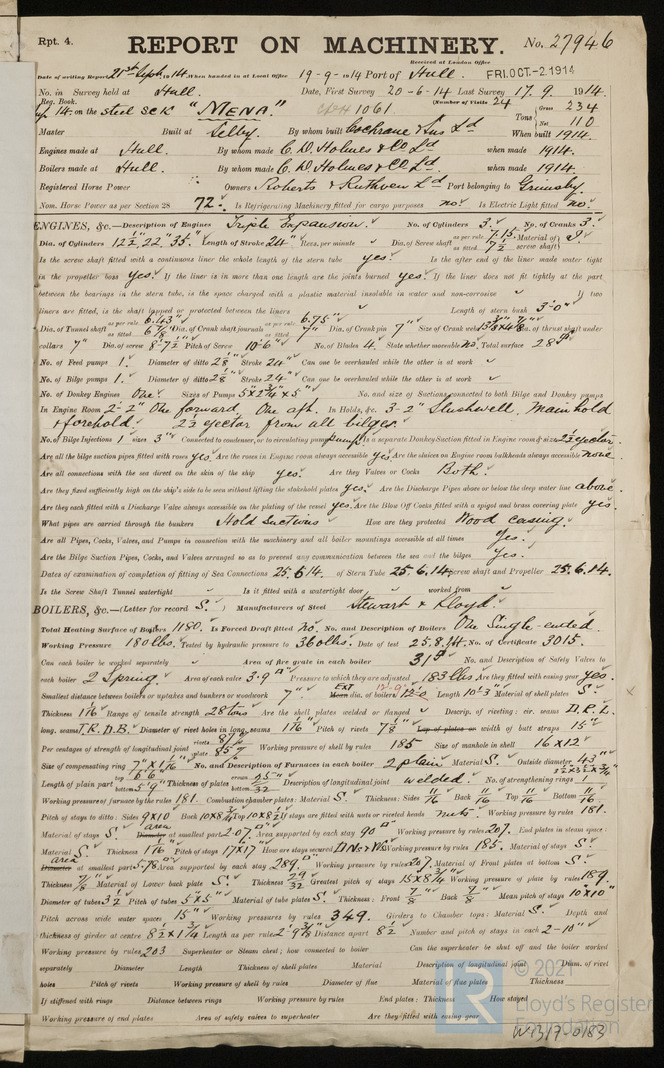 Rpt. 4.
REPORT ON MACHINERY.
No. 27946
Received at London Office
Date of writing Report 21st Sept 1914. When handed in at Local Office 19-9-1914 Port of Hull.
FRI. OCT-2.1914
No. in Survey held at Hull. Date, First Survey 20-6-14 Last Survey 17.9. 1914.
Reg. Book. (Number of Visits 24
14 on the steel sck "MENA." 1061. Tons Gross 234 Net 110
Master Built at Selby. By whom built Cochrane & Sons Ld When built 1914.
Engines made at Hull. By whom made C. D. Holmes & Co Ld when made 1914.
Boilers made at Hull. By whom made C. D. Holmes & Co Ld when made 1914.
Registered Horse Power Owners Roberts & Ruthven Ld Port belonging to Grimsby.
Nom. Horse Power as per Section 28 72. Is Refrigerating Machinery fitted for cargo purposes no. Is Electric Light fitted no.
ENGINES, &c.—Description of Engines Triple Expansion. No. of Cylinders 3. No. of Cranks 3.
Dia. of Cylinders 12½, 22, 35" Length of Stroke 24" Revs. per minute Dia. of Screw shaft as per rule 7.15 as fitted 7½ Material of screw shaft S
Is the screw shaft fitted with a continuous liner the whole length of the stern tube yes. Is the after end of the liner made water tight
in the propeller boss yes. If the liner is in more than one length are the joints burned yes. If the liner does not fit tightly at the part
between the bearings in the stern tube, is the space charged with a plastic material insoluble in water and non-corrosive If two
liners are fitted, is the shaft lapped or protected between the liners Length of stern bush 3'-0"
Dia. of Tunnel shaft as per rule 6.43" as fitted 6⅞" Dia. of Crank shaft journals as per rule 6.75" as fitted 7" Dia. of Crank pin 7" Size of Crank webs 13⅜x4⅜ Dia. of thrust shaft under
collars 7" Dia. of screw 8'-7½" Pitch of Screw 10'-6" No. of Blades 4. State whether moveable no. Total surface 28
No. of Feed pumps 1. Diameter of ditto 2⅝" Stroke 24" Can one be overhauled while the other is at work
No. of Bilge pumps 1. Diameter of ditto 2⅝" Stroke 24" Can one be overhauled while the other is at work
No. of Donkey Engines One. Sizes of Pumps 5"x2¾"x5" No. and size of Suctions connected to both Bilge and Donkey pumps
In Engine Room 2-2" One forward, One aft. In Holds, &c. 3-2" Slushwell, Mainhold
& forehold. 2½ ejector from all bilges.
No. of Bilge Injections 1 sizes 3" Connected to condenser, or to circulating pump pump Is a separate Donkey Suction fitted in Engine room & size 2½ ejector.
Are all the bilge suction pipes fitted with roses yes Are the roses in Engine room always accessible yes Are the sluices on Engine room bulkheads always accessible none
Are all connections with the sea direct on the skin of the ship yes. Are they Valves or Cocks Both.
Are they fixed sufficiently high on the ship's side to be seen without lifting the stokehold plates yes. Are the Discharge Pipes above or below the deep water line above.
Are they each fitted with a Discharge Valve always accessible on the plating of the vessel yes. Are the Blow Off Cocks fitted with a spigot and brass covering plate yes.
What pipes are carried through the bunkers Hold Suctions How are they protected Wood casing.
Are all Pipes, Cocks, Valves, and Pumps in connection with the machinery and all boiler mountings accessible at all times Yes.
Are the Bilge Suction Pipes, Cocks, and Valves arranged so as to prevent any communication between the sea and the bilges Yes.
Dates of examination of completion of fitting of Sea Connections 25.6.14. of Stern Tube 25.6.14. Screw shaft and Propeller 25.6.14.
Is the Screw Shaft Tunnel watertight Is it fitted with a watertight door worked from
BOILERS, &c.—(Letter for record S.) Manufacturers of Steel Stewart & Lloyd.
Total Heating Surface of Boilers 1180. Is Forced Draft fitted no. No. and Description of Boilers One Single-ended.
Working Pressure 180 lbs. Tested by hydraulic pressure to 360 lbs. Date of test 25.8.14. No. of Certificate 3015.
Can each boiler be worked separately Area of fire grate in each boiler 31 No. and Description of Safety Valves to
each boiler 2 Spring. Area of each valve 3.9 Pressure to which they are adjusted 183 lbs Are they fitted with easing gear yes.
Smallest distance between boilers or uptakes and bunkers or woodwork 7" Mean EXT dia. of boilers 12-0 Length 10'-3" Material of shell plates S.
Thickness 1 1/16 Range of tensile strength 28 tons Are the shell plates welded or flanged Descrip. of riveting: cir. seams D.R.L.
long. seams T.R.D.B. Diameter of rivet holes in long. seams 1 1/16 Pitch of rivets 7⅞ Lap of plates or width of butt straps 15"
Per centages of strength of longitudinal joint rivets plate 85 Working pressure of shell by rules 185 Size of manhole in shell 16 x 12"
Size of compensating ring 7" x 1 1/16" No. and Description of Furnaces in each boiler 2 plain Material S. Outside diameter 43"
Length of plain part top 6'6" bottom 5'9" Thickness of plates crown 25/32" bottom Description of longitudinal joint welded No. of strengthening rings 1
Working pressure of furnace by the rules 181. Combustion chamber plates: Material S. Thickness: Sides 11/16 Back 11/16 Top 11/16 Bottom 11/16
Pitch of stays to ditto: Sides 9x10 Back 10x8¾ Top 10x8½ If stays are fitted with nuts or riveted heads nuts. Working pressure by rules 181.
Material of stays S. Diameter area at smallest part 2.07 Area supported by each stay 90 Working pressure by rules 207. End plates in steam space:
Material S. Thickness 1 1/16 Pitch of stays 17x17" How are stays secured D.Nr & Ws Working pressure by rules 185. Material of stays S.
Diameter area at smallest part 5.78 Area supported by each stay 289. Working pressure by rules 207. Material of Front plates at bottom S.
Thickness Material of Lower back plate S. Thickness 29/32 Greatest pitch of stays 15 x 8¾ Working pressure of plate by rules 189.
Diameter of tubes 3½ Pitch of tubes 5"x5" Material of tube plates S. Thickness: Front ⅞ Back ⅞ Mean pitch of stays 10" x 10"
Pitch across wide water spaces 15" Working pressures by rules 349. Girders to Chamber tops: Material S. Depth and
thickness of girder at centre 8½ x 1¾ Length as per rule 2'-9⅜ Distance apart 8½ Number and pitch of stays in each 2-10"
Working pressure by rules 203 Superheater or Steam chest; how connected to boiler Can the superheater be shut off and the boiler worked
separately Diameter Length Thickness of shell plates Material Description of longitudinal joint Diam. of rivet
holes Pitch of rivets Working pressure of shell by rules Diameter of flue Material of flue plates Thickness
If stiffened with rings Distance between rings Working pressure by rules End plates: Thickness How stayed
Working pressure of end plates Area of safety valves to superheater Are they fitted with easing gear
© 2021
Lloyd's Register
Foundation
W1317-0183